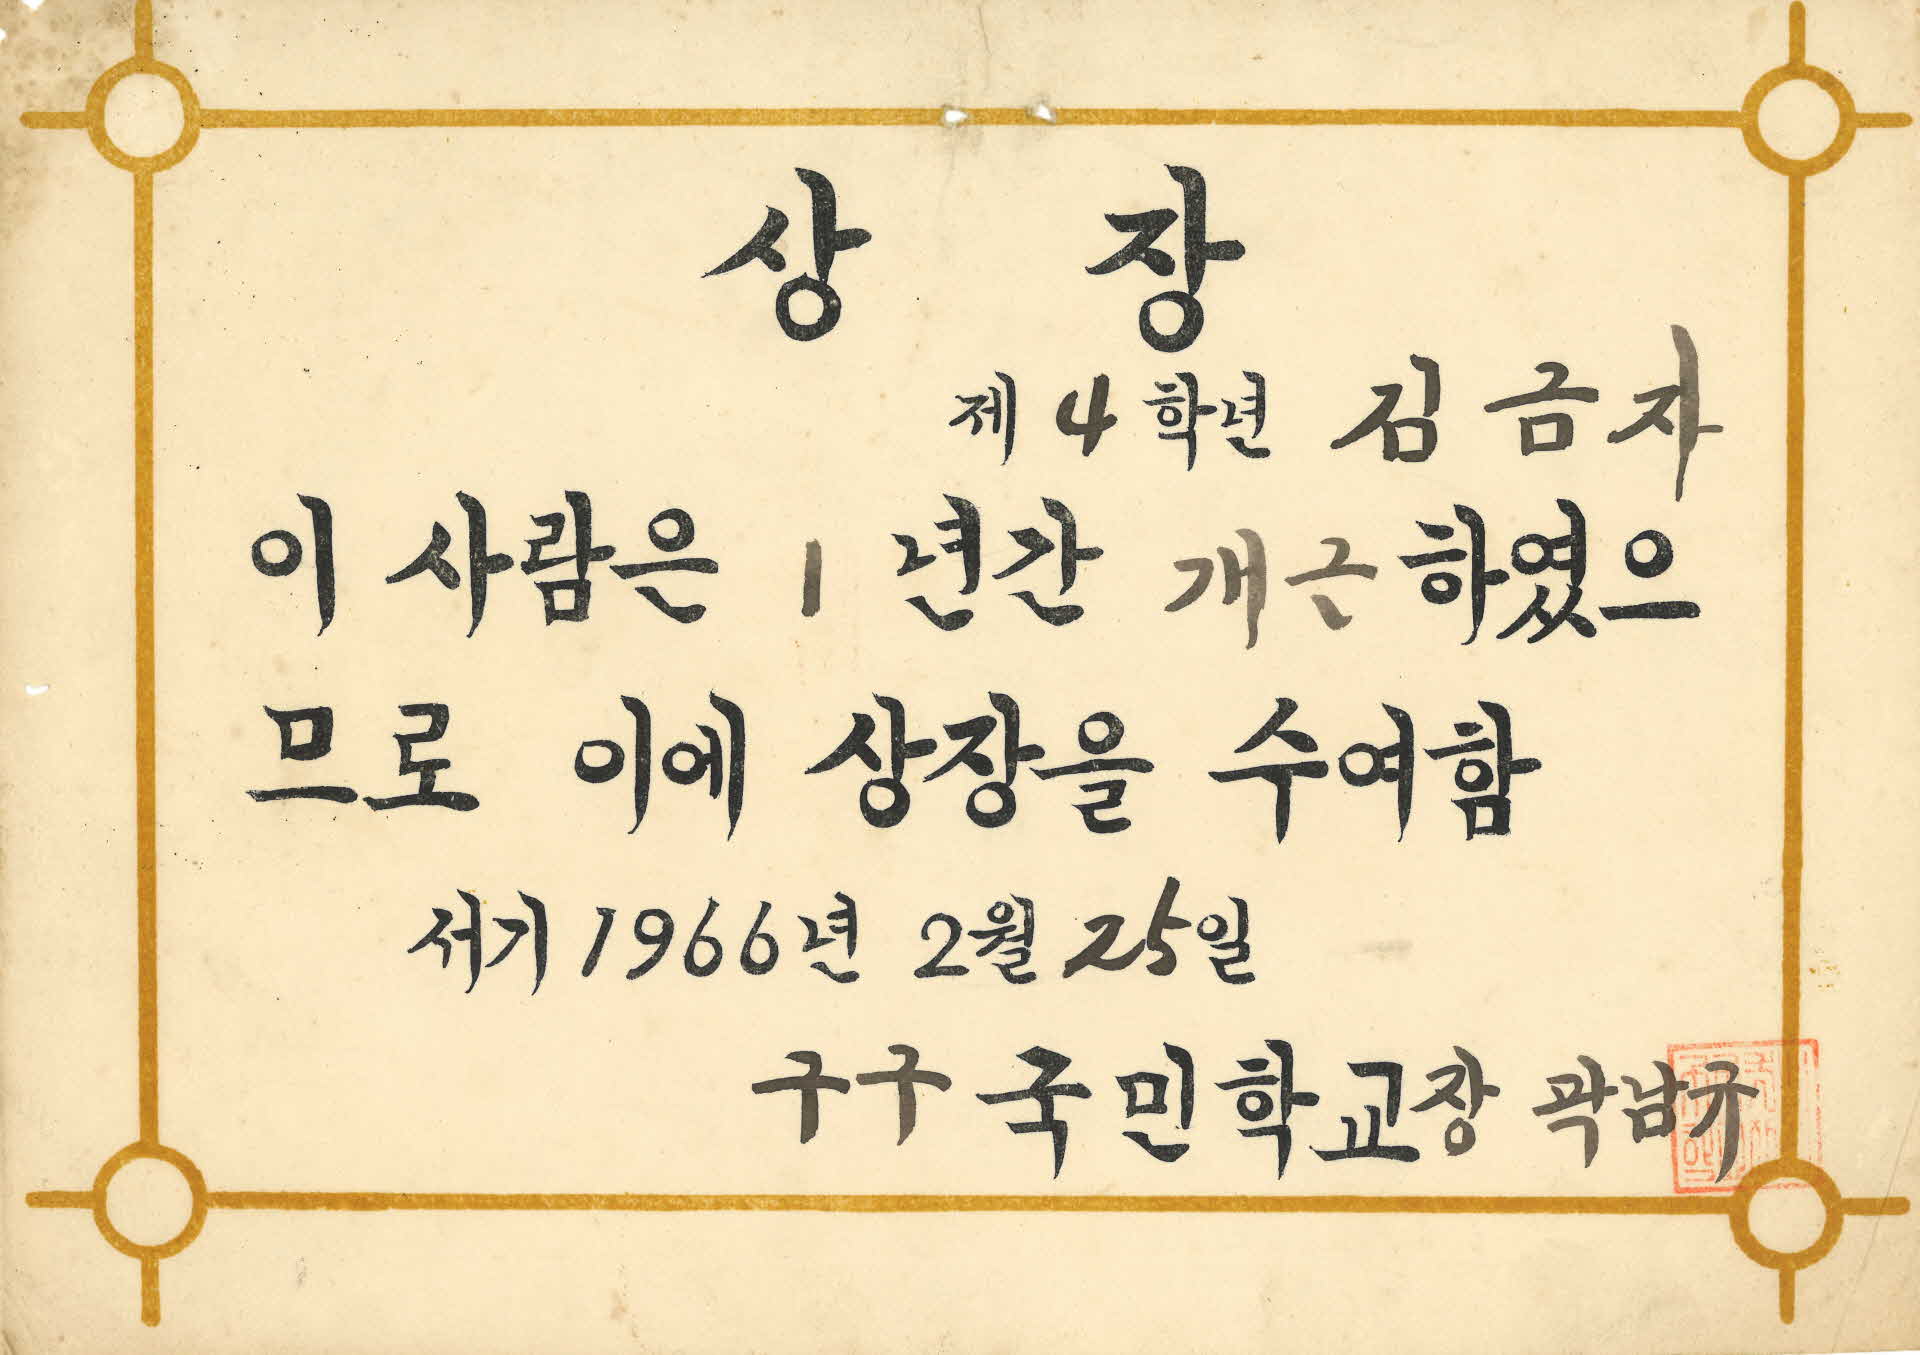 상 장
제 4 학년 김 금 자
이 사람은 1 년간 개근 하였으
므로 이에 상장을 수여함
서기 1966년 2월 25일
구구 국민학교장 곽남규